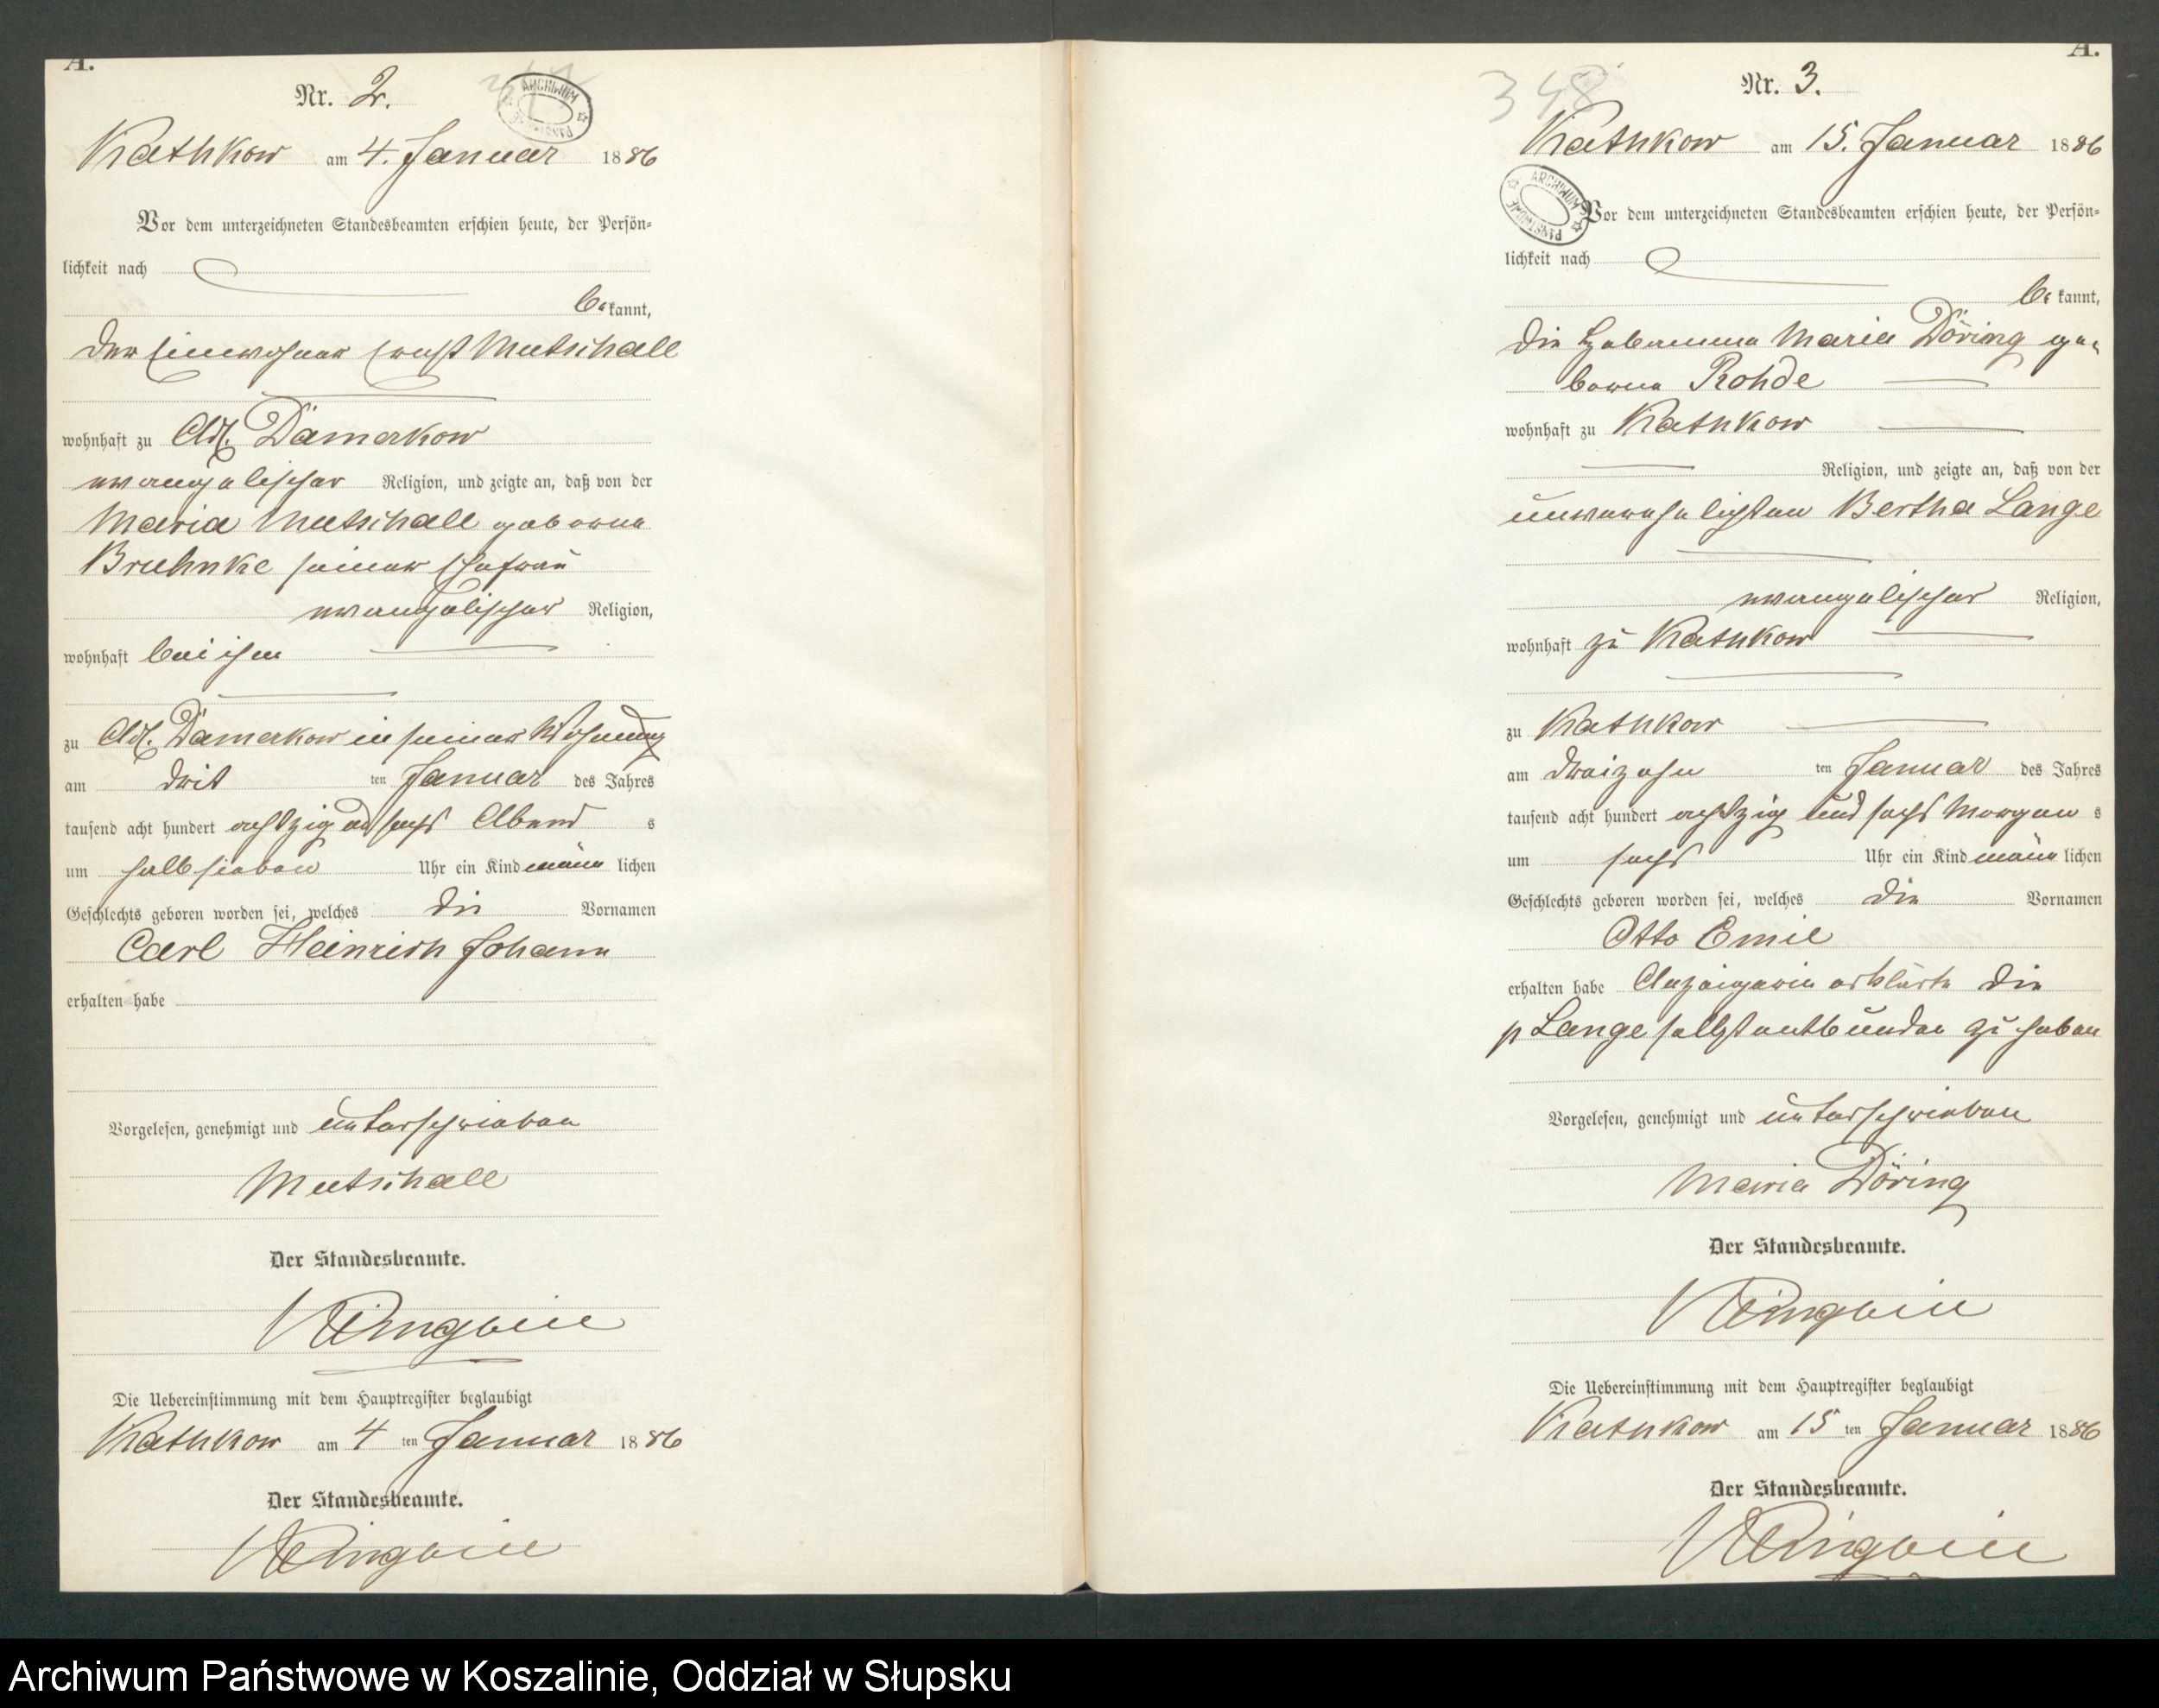 A.
Nr. 2.
ARCHIWUM PAŃSTWOWE
Kathkow am 4. Januar 1886
Vor dem unterzeichneten Standesbeamten erschien heute, der Persön-
lichkeit nach
be kannt,
der Einwohner Ernst Mutschall
wohnhaft zu Adl. Damerkow
evangelischer Religion, und zeigte an, daß von der
Maria Mutschall geborene
Bruhnke seiner Ehefrau
evangelischer Religion,
wohnhaft bei ihm
zu Adl. Damerkow in seiner Wohnung
am drit ten Januar des Jahres
tausend acht hundert achtzig und sechs Abend s
um halb sieben Uhr ein Kind männ lichen
Geschlechts geboren worden sei, welches die Vornamen
Carl Heinrich Johann
erhalten habe
Vorgelesen, genehmigt und unterschrieben
Mutschall
Der Standesbeamte.
Die Uebereinstimmung mit dem Hauptregister beglaubigt
Kathkow am 4 ten Januar 1886
Der Standesbeamte.
A.
348
Nr. 3.
Kathkow am 15. Januar 1886
ARCHIWUM PAŃSTWOWE
Vor dem unterzeichneten Standesbeamten erschien heute, der Persön-
lichkeit nach
be kannt,
die Hebamme Maria Döring ge-
borene Rohde
wohnhaft zu Kathkow
Religion, und zeigte an, daß von der
unverehelichten Bertha Lange
evangelischer Religion,
wohnhaft zu Kathkow
zu Kathkow
am dreizehn ten Januar des Jahres
tausend acht hundert achtzig und sechs Morgen s
um sechs Uhr ein Kind männ lichen
Geschlechts geboren worden sei, welches die Vornamen
Otto Emil
erhalten habe Anzeigerin erklärte die
p Lange selbst entbunden zu haben
Vorgelesen, genehmigt und unterschrieben
Maria Döring
Der Standesbeamte.
Die Uebereinstimmung mit dem Hauptregister beglaubigt
Kathkow am 15 ten Januar 1886
Der Standesbeamte.
Archiwum Państwowe w Koszalinie, Oddział w Słupsku